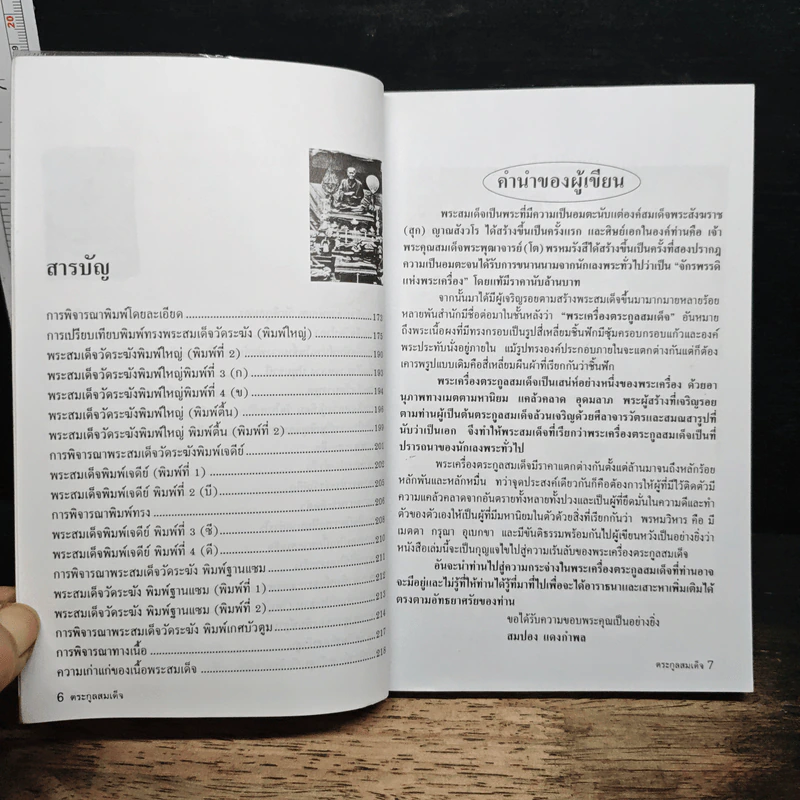 20
19
สารบัญ
การพิจารณาพิมพ์โดยละเอียด 173
การเปรียบเทียบพิมพ์ทรงพระสมเด็จวัดระฆัง (พิมพ์ใหญ่) 175
พระสมเด็จวัดระฆังพิมพ์ใหญ่ (พิมพ์ที่ 2) 190
พระสมเด็จวัดระฆังพิมพ์ใหญ่พิมพ์ที่ 3 (ก) 193
พระสมเด็จวัดระฆังพิมพ์ใหญ่พิมพ์ที่ 4 (ข) 194
พระสมเด็จวัดระฆังพิมพ์ใหญ่ (พิมพ์ตื้น) 198
พระสมเด็จวัดระฆังพิมพ์ใหญ่ พิมพ์ตื้น (พิมพ์ที่ 2) 199
การพิจารณาพระสมเด็จวัดระฆังพิมพ์เจดีย์ 201
พระสมเด็จพิมพ์เจดีย์ (พิมพ์ที่ 1) 202
พระสมเด็จพิมพ์เจดีย์ พิมพ์ที่ 2 (บี) 205
การพิจารณาพิมพ์ทรง 206
พระสมเด็จพิมพ์เจดีย์ พิมพ์ที่ 3 (ซี) 208
พระสมเด็จพิมพ์เจดีย์ พิมพ์ที่ 4 (ดี) 209
การพิจารณาพระสมเด็จวัดระฆัง พิมพ์ฐานแซม 211
พระสมเด็จวัดระฆัง พิมพ์ฐานแซม (พิมพ์ที่ 1) 212
พระสมเด็จวัดระฆัง พิมพ์ฐานแซม (พิมพ์ที่ 2) 213
การพิจารณาพระสมเด็จวัดระฆัง พิมพ์เกศบัวตูม 214
การพิจารณาทางเนื้อ 217
ความเก่าแก่ของเนื้อพระสมเด็จ 218
6 ตระกูลสมเด็จ
คำนำของผู้เขียน
พระสมเด็จเป็นพระที่มีความเป็นอมตะนับแต่องค์สมเด็จพระสังฆราช
(สุก) ญาณสังวโร ได้สร้างขึ้นเป็นครั้งแรก และศิษย์เอกในองค์ท่านคือ เจ้า
พระคุณสมเด็จพระพุฒาจารย์ (โต) พรหมรังสีได้สร้างขึ้นเป็นครั้งที่สองปรากฎ
ความเป็นอมตะจนได้รับการขนานนามจากนักเลงพระทั่วไปว่าเป็น “จักรพรรดิ
แห่งพระเครื่อง” โดยแท้มีราคานับล้านบาท
จากนั้นมาได้มีผู้เจริญรอยตามสร้างพระสมเด็จขึ้นมามากมายหลายร้อย
หลายพันสำนักมีชื่อต่อมาในชั้นหลังว่า “พระเครื่องตระกูลสมเด็จ” อันหมาย
ถึงพระเนื้อผงที่มีทรงกรอบเป็นรูปสี่เหลี่ยมชิ้นฟักมีซุ้มครอบกรอบแก้วและองค์
พระประทับนั่งอยู่ภายใน แม้รูปทรงองค์ประกอบภายในจะแตกต่างกันแต่ก็ต้อง
เคารพรูปแบบเดิมคือสี่เหลี่ยมผืนผ้าที่เรียกกันว่าชิ้นฟัก
พระเครื่องตระกูลสมเด็จเป็นเสน่ห์อย่างหนึ่งของพระเครื่อง ด้วยอา
นุภาพทางเมตตามหานิยม แคล้วคลาด อุดมลาภ พระผู้สร้างที่เจริญรอย
ตามท่านผู้เป็นต้นตระกูลสมเด็จล้วนเจริญด้วยศีลาจารวัตรและสมณสารูปที่
นับว่าเป็นเอก จึงทำให้พระสมเด็จที่เรียกว่าพระเครื่องตระกูลสมเด็จเป็นที่
ปรารถนาของนักเลงพระทั่วไป
พระเครื่องตระกูลสมเด็จมีราคาแตกต่างกันตั้งแต่ล้านมาจนถึงหลักร้อย
หลักพันและหลักหมื่น ทว่าจุดประสงค์เดียวกันก็คือต้องการให้ผู้ที่มีไว้ติดตัวมี
ความแคล้วคลาดจากอันตรายทั้งหลายทั้งปวงและเป็นผู้ที่ยึดมั่นในความดีและทำ
ตัวของตัวเองให้เป็นผู้ที่มีมหานิยมในตัวด้วยสิ่งที่เรียกกันว่า พรหมวิหาร คือ มี
เมตตา กรุณา อุเบกขา และมีขันติธรรมพร้อมกันไปผู้เขียนหวังเป็นอย่างยิ่งว่า
หนังสือเล่มนี้จะเป็นกุญแจไขไปสู่ความเร้นลับของพระเครื่องตระกูลสมเด็จ
อันจะนำท่านไปสู่ความกระจ่างในพระเครื่องตระกูลสมเด็จที่ท่านอาจ
จะมีอยู่และไม่รู้ที่ให้ท่านได้รู้ที่มาที่ไปเพื่อจะได้อาราธนาและเสาะหาเพิ่มเติมได้
ตรงตามอัทธยาศรัยของท่าน
ขอได้รับความขอบพระคุณเป็นอย่างยิ่ง
สมปอง แดงกำพล
ตระกูลสมเด็จ 7